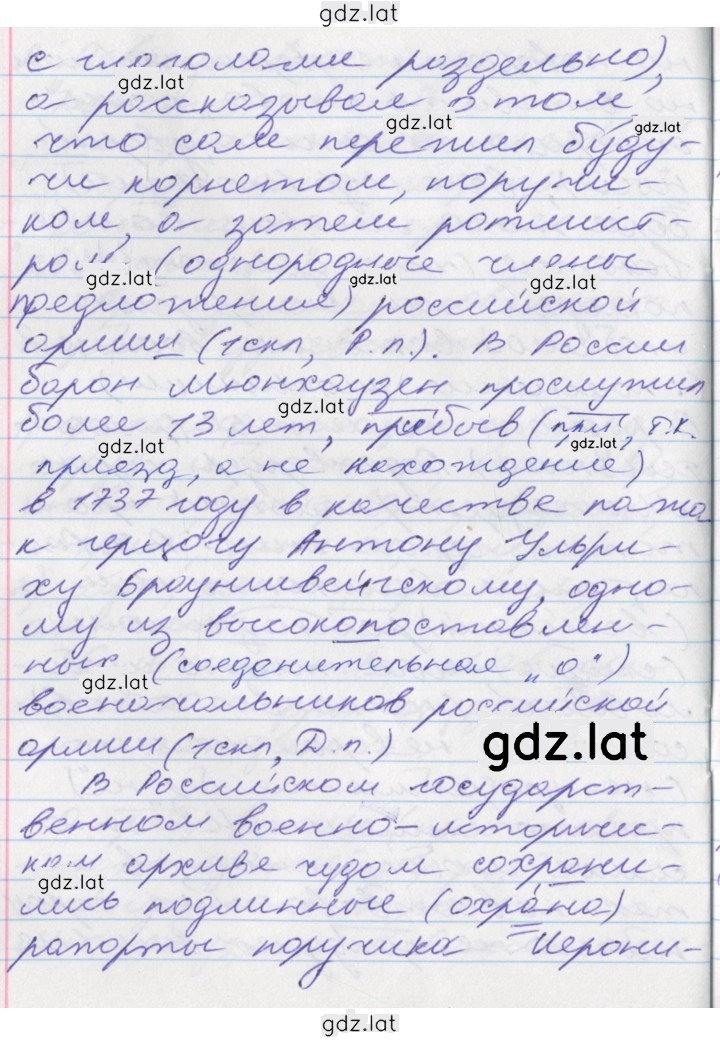 gdz.lat
с глаголами раздельно),
gdz.lat
а рассказывал о том,
gdz.lat
gdz.lat
что сам пережил буду-
чи корнетом, поручи-
ком, а затем ротмист-
gdz.lat
ром (однородные члены
gdz.lat
gdz.lat
предложения) российской
армии (1скл, Р.п.). В России
барон Мюнхаузен прослужил
gdz.lat
более 13 лет, прибыв (при, т.к.
gdz.lat
gdz.lat
приезд, а не нахождение)
в 1737 году в качестве пажа
к герцогу Антону Ульри-
ху Брауншвейгскому, одно-
му из высокопоставлен-
ных (соеденительная „о“)
gdz.lat
военачальников российской
gdz.lat
армии (1скл, Д.п.)
В Российском государст-
венном военно-историчес-
ком архиве чудом сохрани-
gdz.lat
лись подлинные (охрана)
рапорты поручика Иерони-
gdz.lat